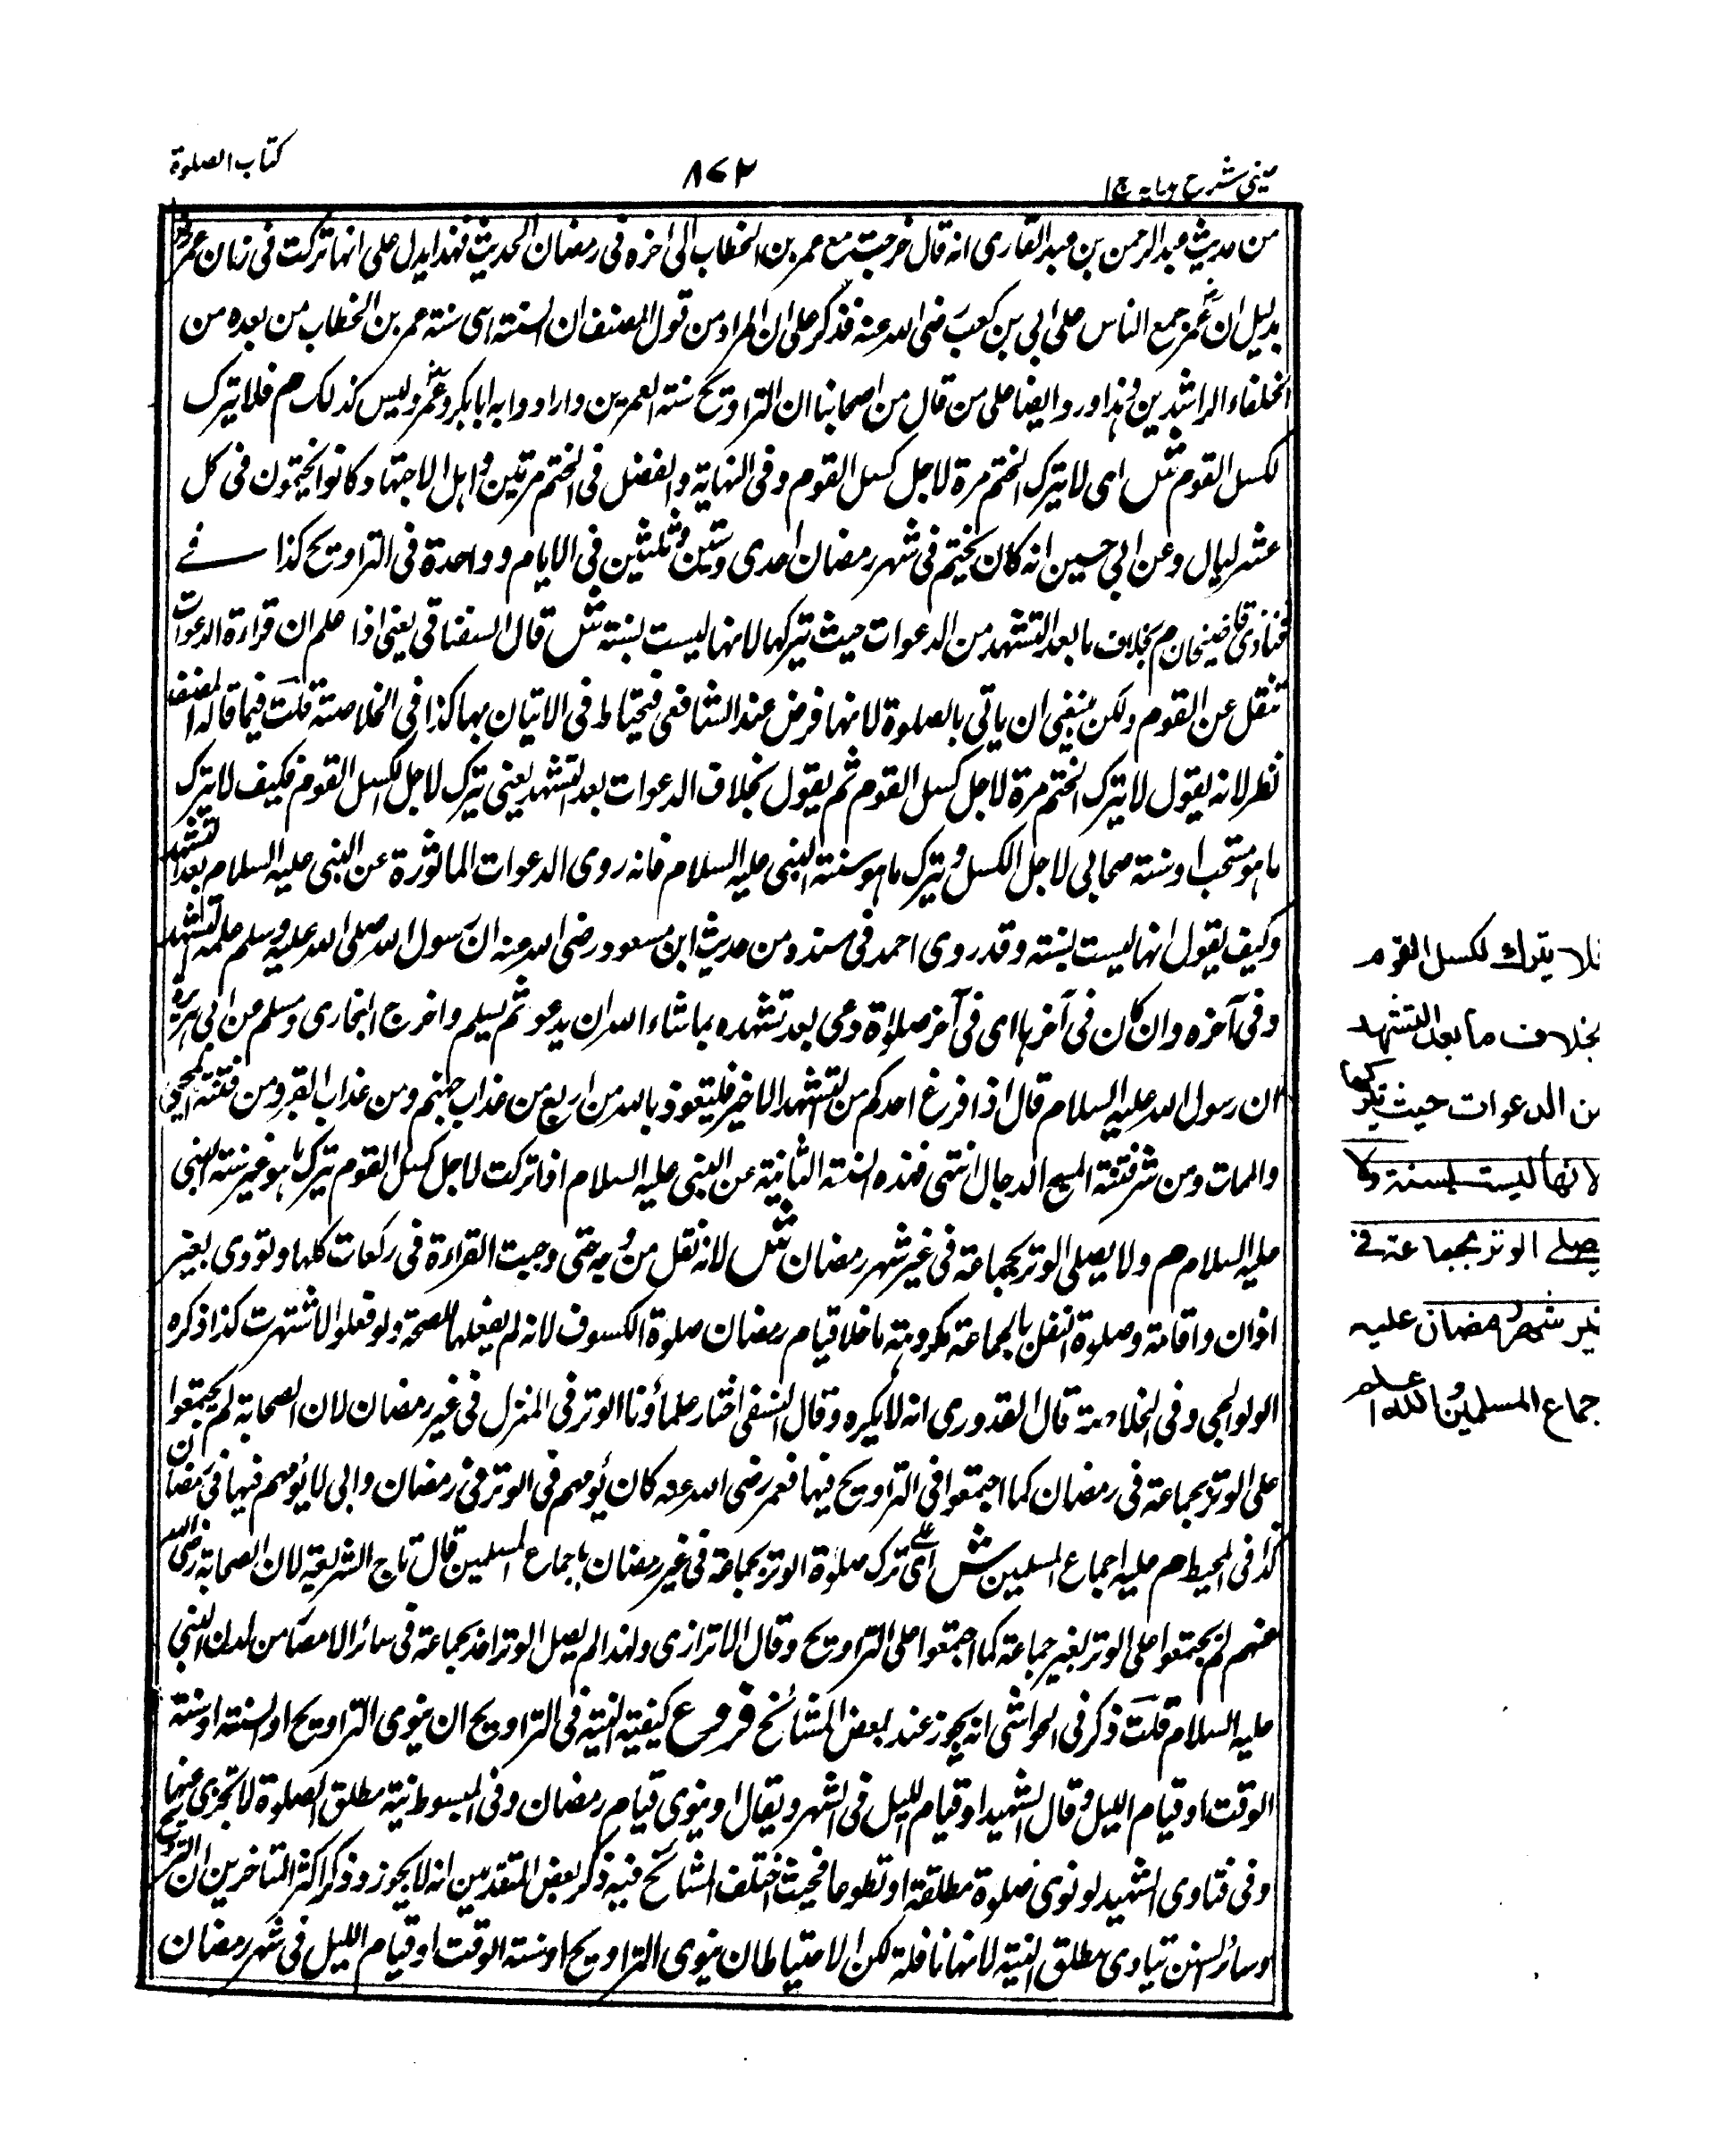 عینی شرح ہدایہ ج ۱
۸۶۲
کتاب الصلوة
من حدیث عبدالرحمن بن عبدالقاری انه قال خرجت مع عمر بن الخطاب الی اخره فی رمضان الحدیث فهذا یدل علی انها ترکت فی زمان عمر رض
بدلیل ان عمر رض جمع الناس علی ابی بن کعب رضی الله عنه فذکر علی ان المراد من قول المصنف ان السنة ای سنة عمر بن الخطاب من بعده من
الخلفاء الراشدین وهذا ورد ایضا علی من قال من اصحابنا ان التراویح سنة العمرین وارادوا به ابا بکر وعمر رض ولیس کذلک م فلا یترک
لکسل القوم ش ای لا یترک الختم مرة لاجل کسل القوم وفی النهایة والفضل فی الختم مرتین واهل الاجتهاد کانوا یختمون فی کل
عشر لیال وعن ابی حسین انه کان یختم فی شهر رمضان احدی وستین وثلثین فی الایام وواحدة فی التراویح کذا فی
فتاوی قاضیخان م بخلاف ما بعد التشهد من الدعوات حیث یترکها لانها لیست بسنة ش قال السغناقی یعنی اذا علم ان قراءة الدعوات
تثقل عن القوم ولکن ینبغی ان یاتی بالصلوة لانها فرض عند الشافعی فیحتاط فی الاتیان بها کذا فی الخلاصة قلت فیما قاله المصنف
نظر لانه یقول لا یترک الختم مرة لاجل کسل القوم ثم یقول بخلاف الدعوات بعد التشهد یعنی یترک لاجل کسل القوم فکیف لا یترک
ما هو مستحب او سنة صحابی لاجل الکسل ویترک ما هو سنة النبی علیه السلام فانه روی الدعوات الماثورة عن النبی علیه السلام بعد التشهد
وکیف یقول انها لیست بسنة وقد روی احمد فی مسنده من حدیث ابن مسعود رضی الله عنه ان رسول الله صلی الله علیه وسلم علمه التشهد
وفی آخره وان کان فی آخرها ای فی آخر صلاة دعی بعد تشهده بما شاء الله ان یدعو ثم یسلم واخرج البخاری ومسلم عن ابی هریرة
ان رسول الله علیه السلام قال اذا فرغ احدکم من التشهد الاخیر فلیتعوذ بالله من اربع من عذاب جهنم ومن عذاب القبر ومن فتنة المحیی
والممات ومن شر فتنة المسیح الدجال انتهی فهذه السنة الثابتة عن النبی علیه السلام اذا ترکت لاجل کسل القوم یترک ما هو غیر سنة النبی
علیه السلام م ولا یصلی الوتر بجماعة فی غیر شهر رمضان ش لانه نفل من وجه حتی وجبت القراءة فی رکعات کلها وتؤدی بغیر
اذان واقامة وصلوة النفل بالجماعة مکروهة ما خلا قیام رمضان صلوة الکسوف لانه لم یفعلها الصحابة ولو فعلوا لاشتهرت کذا ذکره
الولوالجی وفی الخلاصة قال القدوری انه لا یکره وقال النسفی اختار علماؤنا الوتر فی المنزل فی غیر رمضان لان الصحابة لم یجتمعوا
علی الوتر بجماعة فی رمضان کما اجتمعوا فی التراویح فیها فعمر رضی الله عنه کان یؤمهم فی الوتر فی رمضان وابی لا یؤمهم فیها فی رمضان
کذا فی المحیط م علیه اجماع المسلمین ش ای علی ترک صلوة الوتر بجماعة فی غیر رمضان باجماع المسلمین قال تاج الشریعة لان الصحابة رضی الله
عنهم لم یجتمعوا علی الوتر بغیر جماعة کما اجتمعوا علی التراویح وقال الاترازی ولهذا لم یصل الوتر احد بجماعة فی سائر الامصار من لدن النبی
علیه السلام قلت ذکر فی الحواشی انه یجوز عند بعض المشائخ فروع کیفیة النیة فی التراویح ان ینوی التراویح او السنة او سنة
الوقت او قیام اللیل وقال الشهید او قیام اللیل فی الشهر ویقال او ینوی قیام رمضان وفی المبسوط نیة مطلق الصلوة لا تجزی عنها
وفی فتاوی الشهید لو نوی صلوة مطلقة او تطوعا فحیث اختلف المشائخ فیه ذکر بعض المتقدمین انه لا یجوز وذکر اکثر المتاخرین ان التراویح
وسائر السنن تتادی بمطلق النیة لانها نافلة لکن الاحتیاط ان ینوی التراویح او سنة الوقت او قیام اللیل فی شهر رمضان
فلا یترك لکسل القوم
بخلاف ما بعد التشهد
من الدعوات حیث یترکها
لانها لیست بسنة ولا
یصلی الوتر بجماعة فی
غیر شهر رمضان علیه
اجماع المسلمین والله اعلم